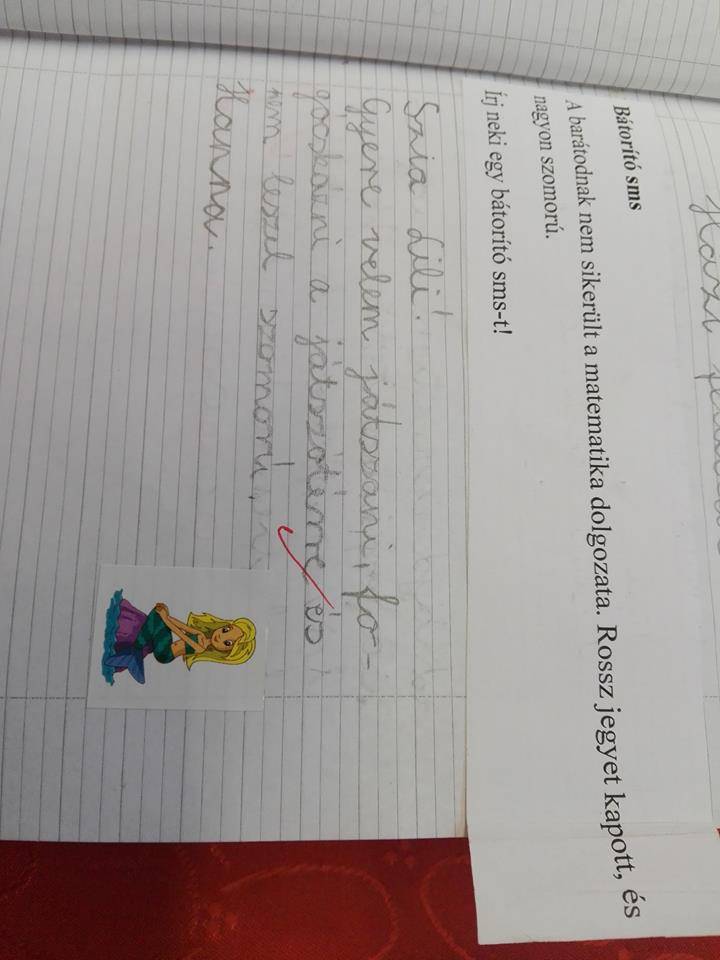 Házi
Bátorító sms
A barátodnak nem sikerült a matematika dolgozata. Rossz jegyet kapott, és
nagyon szomorú.
Írj neki egy bátorító sms-t!
Szia Lili!
Gyere velem játszani, fo-
gócskázni a játszótérre és
nem leszel szomorú,
Hanna.